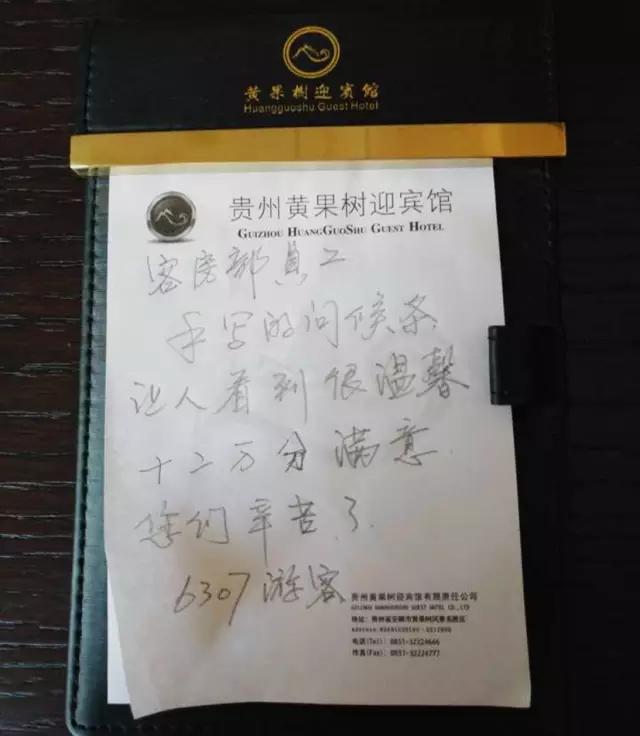 黄果樹迎賓館
Huangguoshu Guest Hotel
贵州黄果树迎宾馆
GUIZHOU HUANGGUOSHU GUEST HOTEL
客房部员工
手写的问候条
让人看到很温馨
十二万分满意.
您们辛苦了.
6307游客
贵州黄果树迎宾馆有限责任公司
GUIZHOU HUANGGUOSHU GUEST HOTEL CO.,LTD
地址：贵州省安顺市黄果树风景名胜区
电话(Tel)：0851-32224666
传真(Fax)：0851-32224777